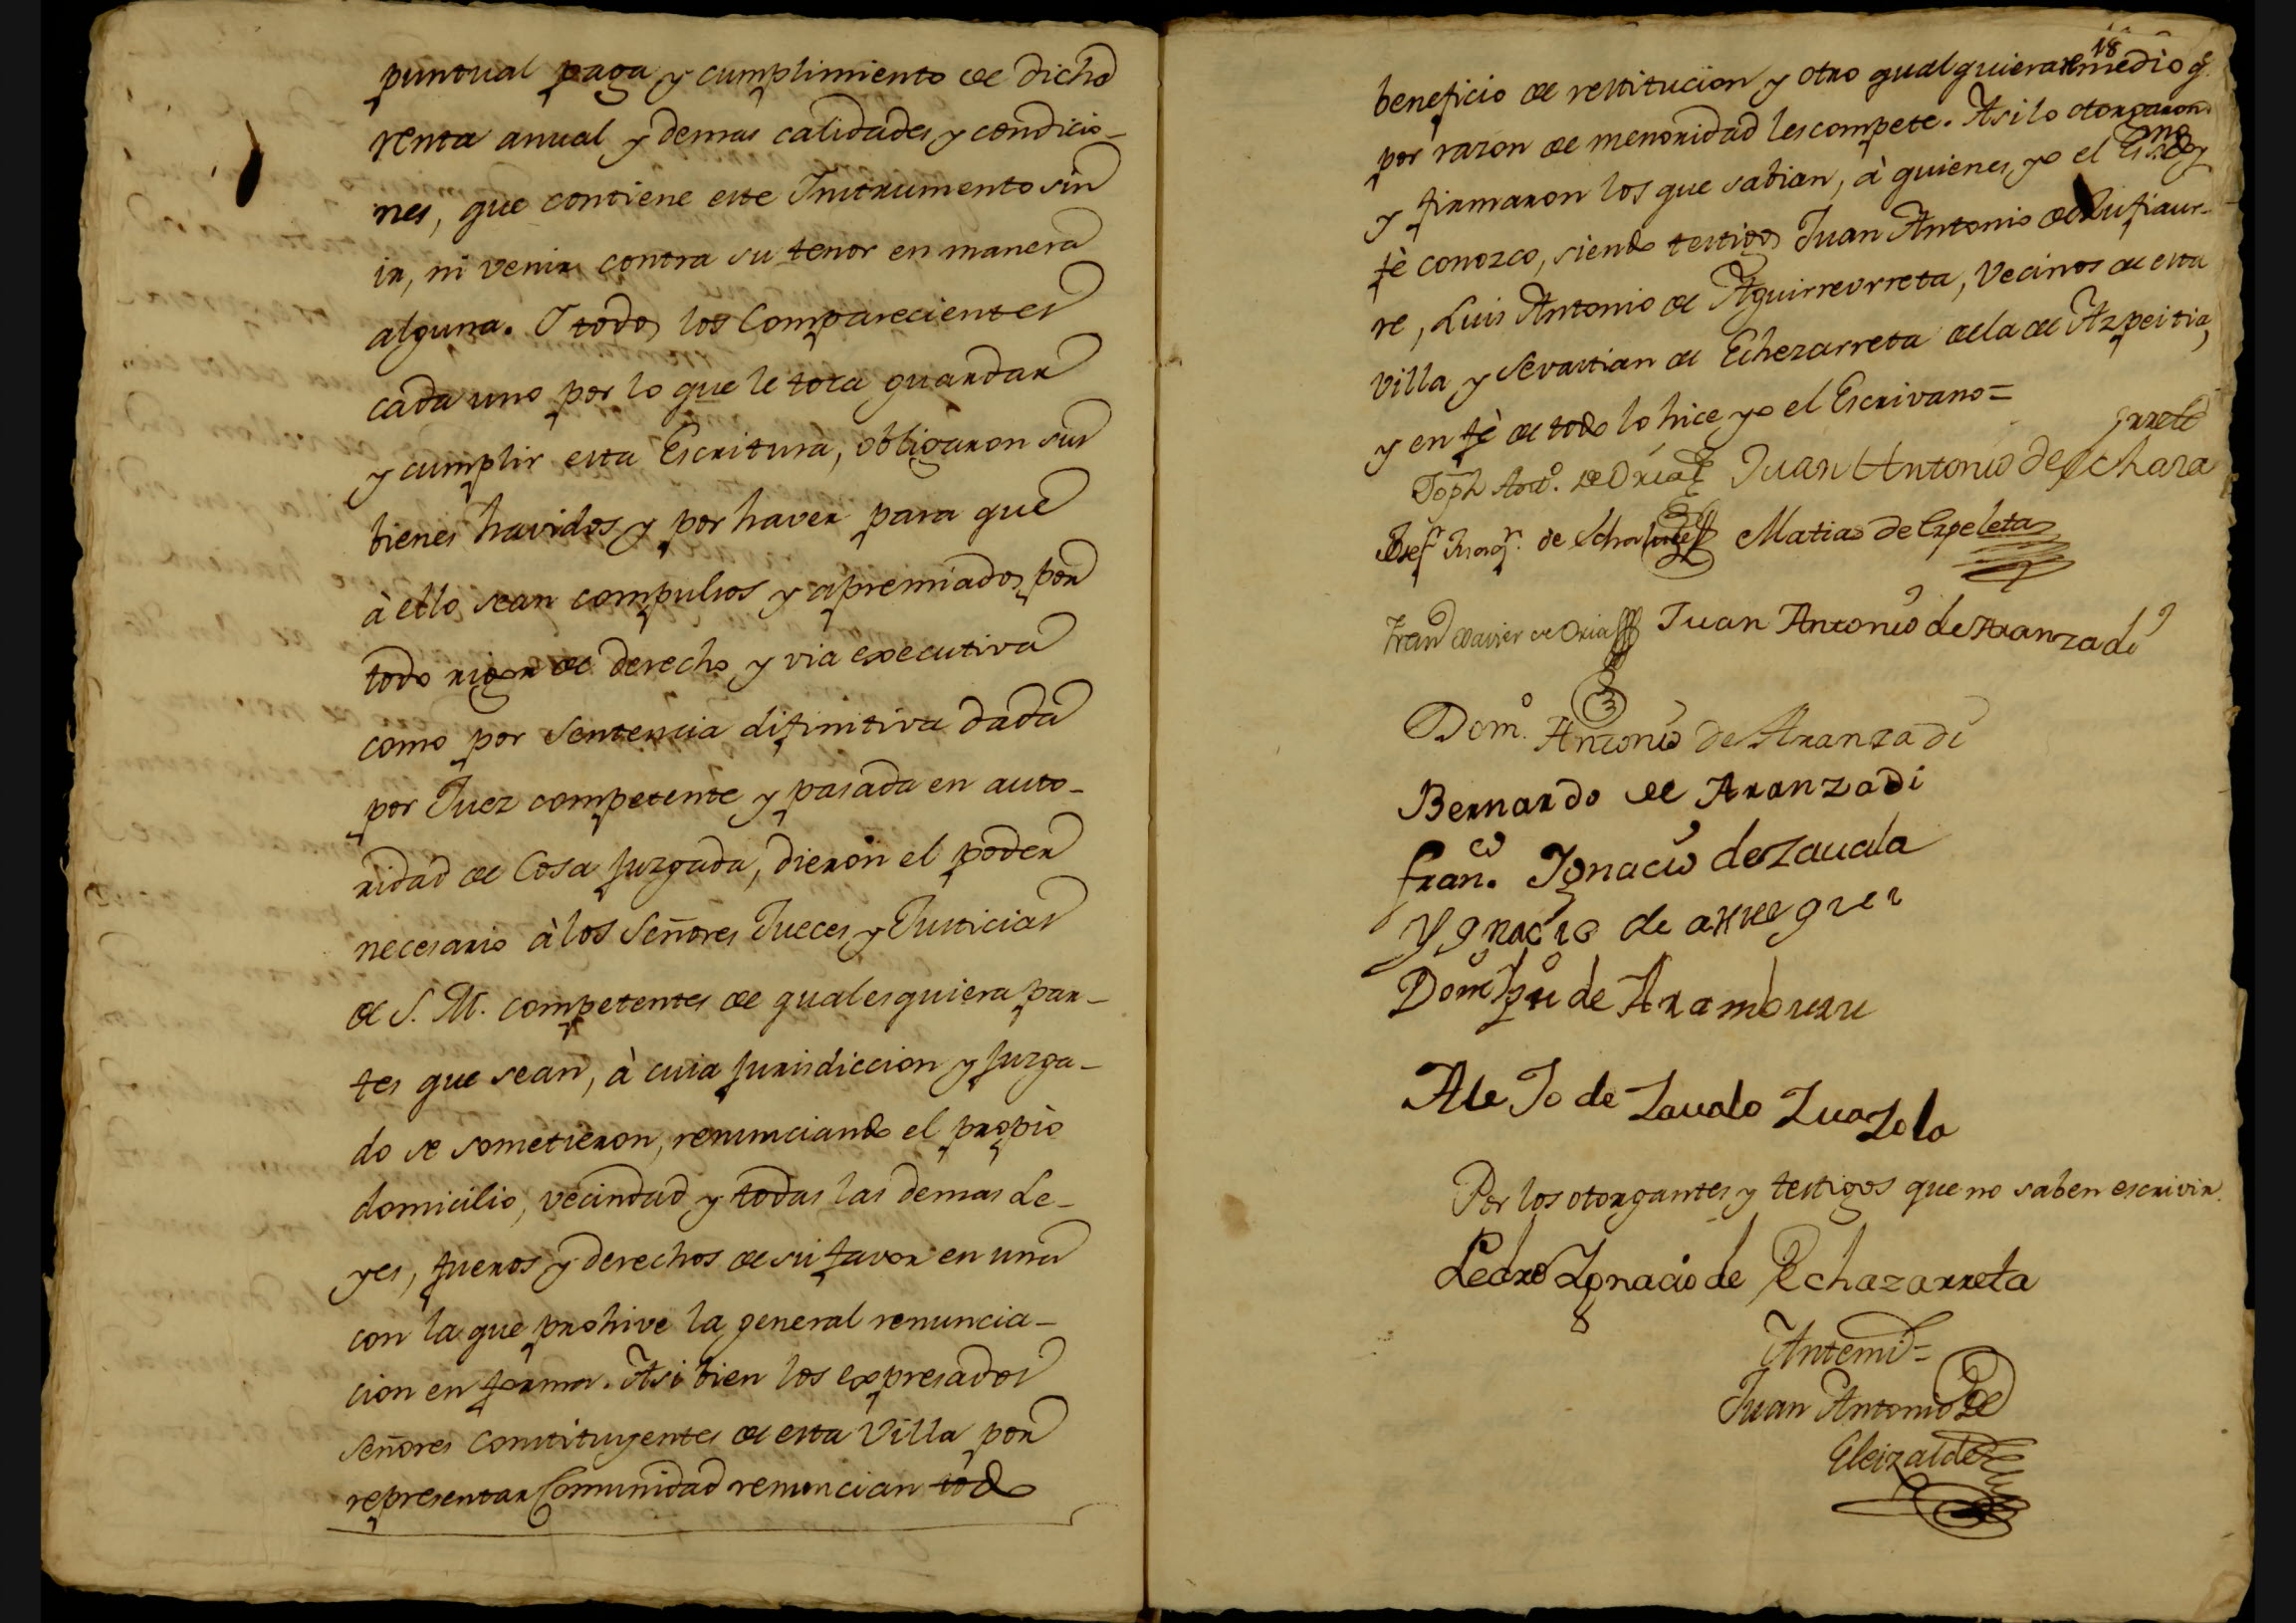 puntual paga y cumplimiento de dicha
renta anual y demas calidades y condicio-
nes, que contiene este Instrumento sin
ir, ni venir contra su tenor en manera
alguna. Y todos los Comparecientes
cada uno por lo que le toca guardar
y cumplir esta Escritura, obligaron sus
bienes havidos y por haver para que
à ello sean compulsos y apremiados por
todo rigor de derecho y via executiva
como por sentencia difinitiva dada
por Juez competente y pasada en auto-
ridad de Cosa juzgada, dieron el poder
necesario à los Señores Jueces y Justicias
de S. M. competentes de qualesquiera par-
tes que sean, à cuia jurisdiccion y juzga-
do se sometieron, renunciando el propio
domicilio, vecindad y todas las demas Le-
yes, fueros y derechos de su favor en una
con la que prohive la general renuncia-
cion en forma. Asi bien los expresados
señores constituyentes de esta Villa por
representar Comunidad renuncian todo
18
beneficio de restitucion y otro qualquiera remedio q.
por razon de menoridad les compete. Asi lo otorgaron
y firmaron los que sabian, à quienes yo el Essno doy
fè conozco, siendo testigos Juan Antonio de
re, Luis Antonio de Aguirreurreta, Vecinos de esta
villa y Sevastian de Echezarreta de la de Azpeitia,
y en fè de todo lo hice yo el Escrivano=
Joph Anto. de Oria Juan Antonio de Echaza
rreta
de Matias de Ezpeleta
Franco Xavier de Oria Juan Antonio de Aranzadi
Domo. Antonio de Aranzadi
Bernardo de Aranzadi
Franco. Ignacio de Zauala
Ygnacio de arregui
Domo Ign de Aramburu
AleJo de Zauala Zuazola
Por los otorgantes y testigos que no saben escrivir.
Pedro Ignacio de Echazarreta
Antemi=
Juan Antonio de
Eleizalde